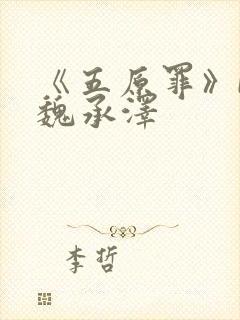 《五原罪》
魏承澤
李哲